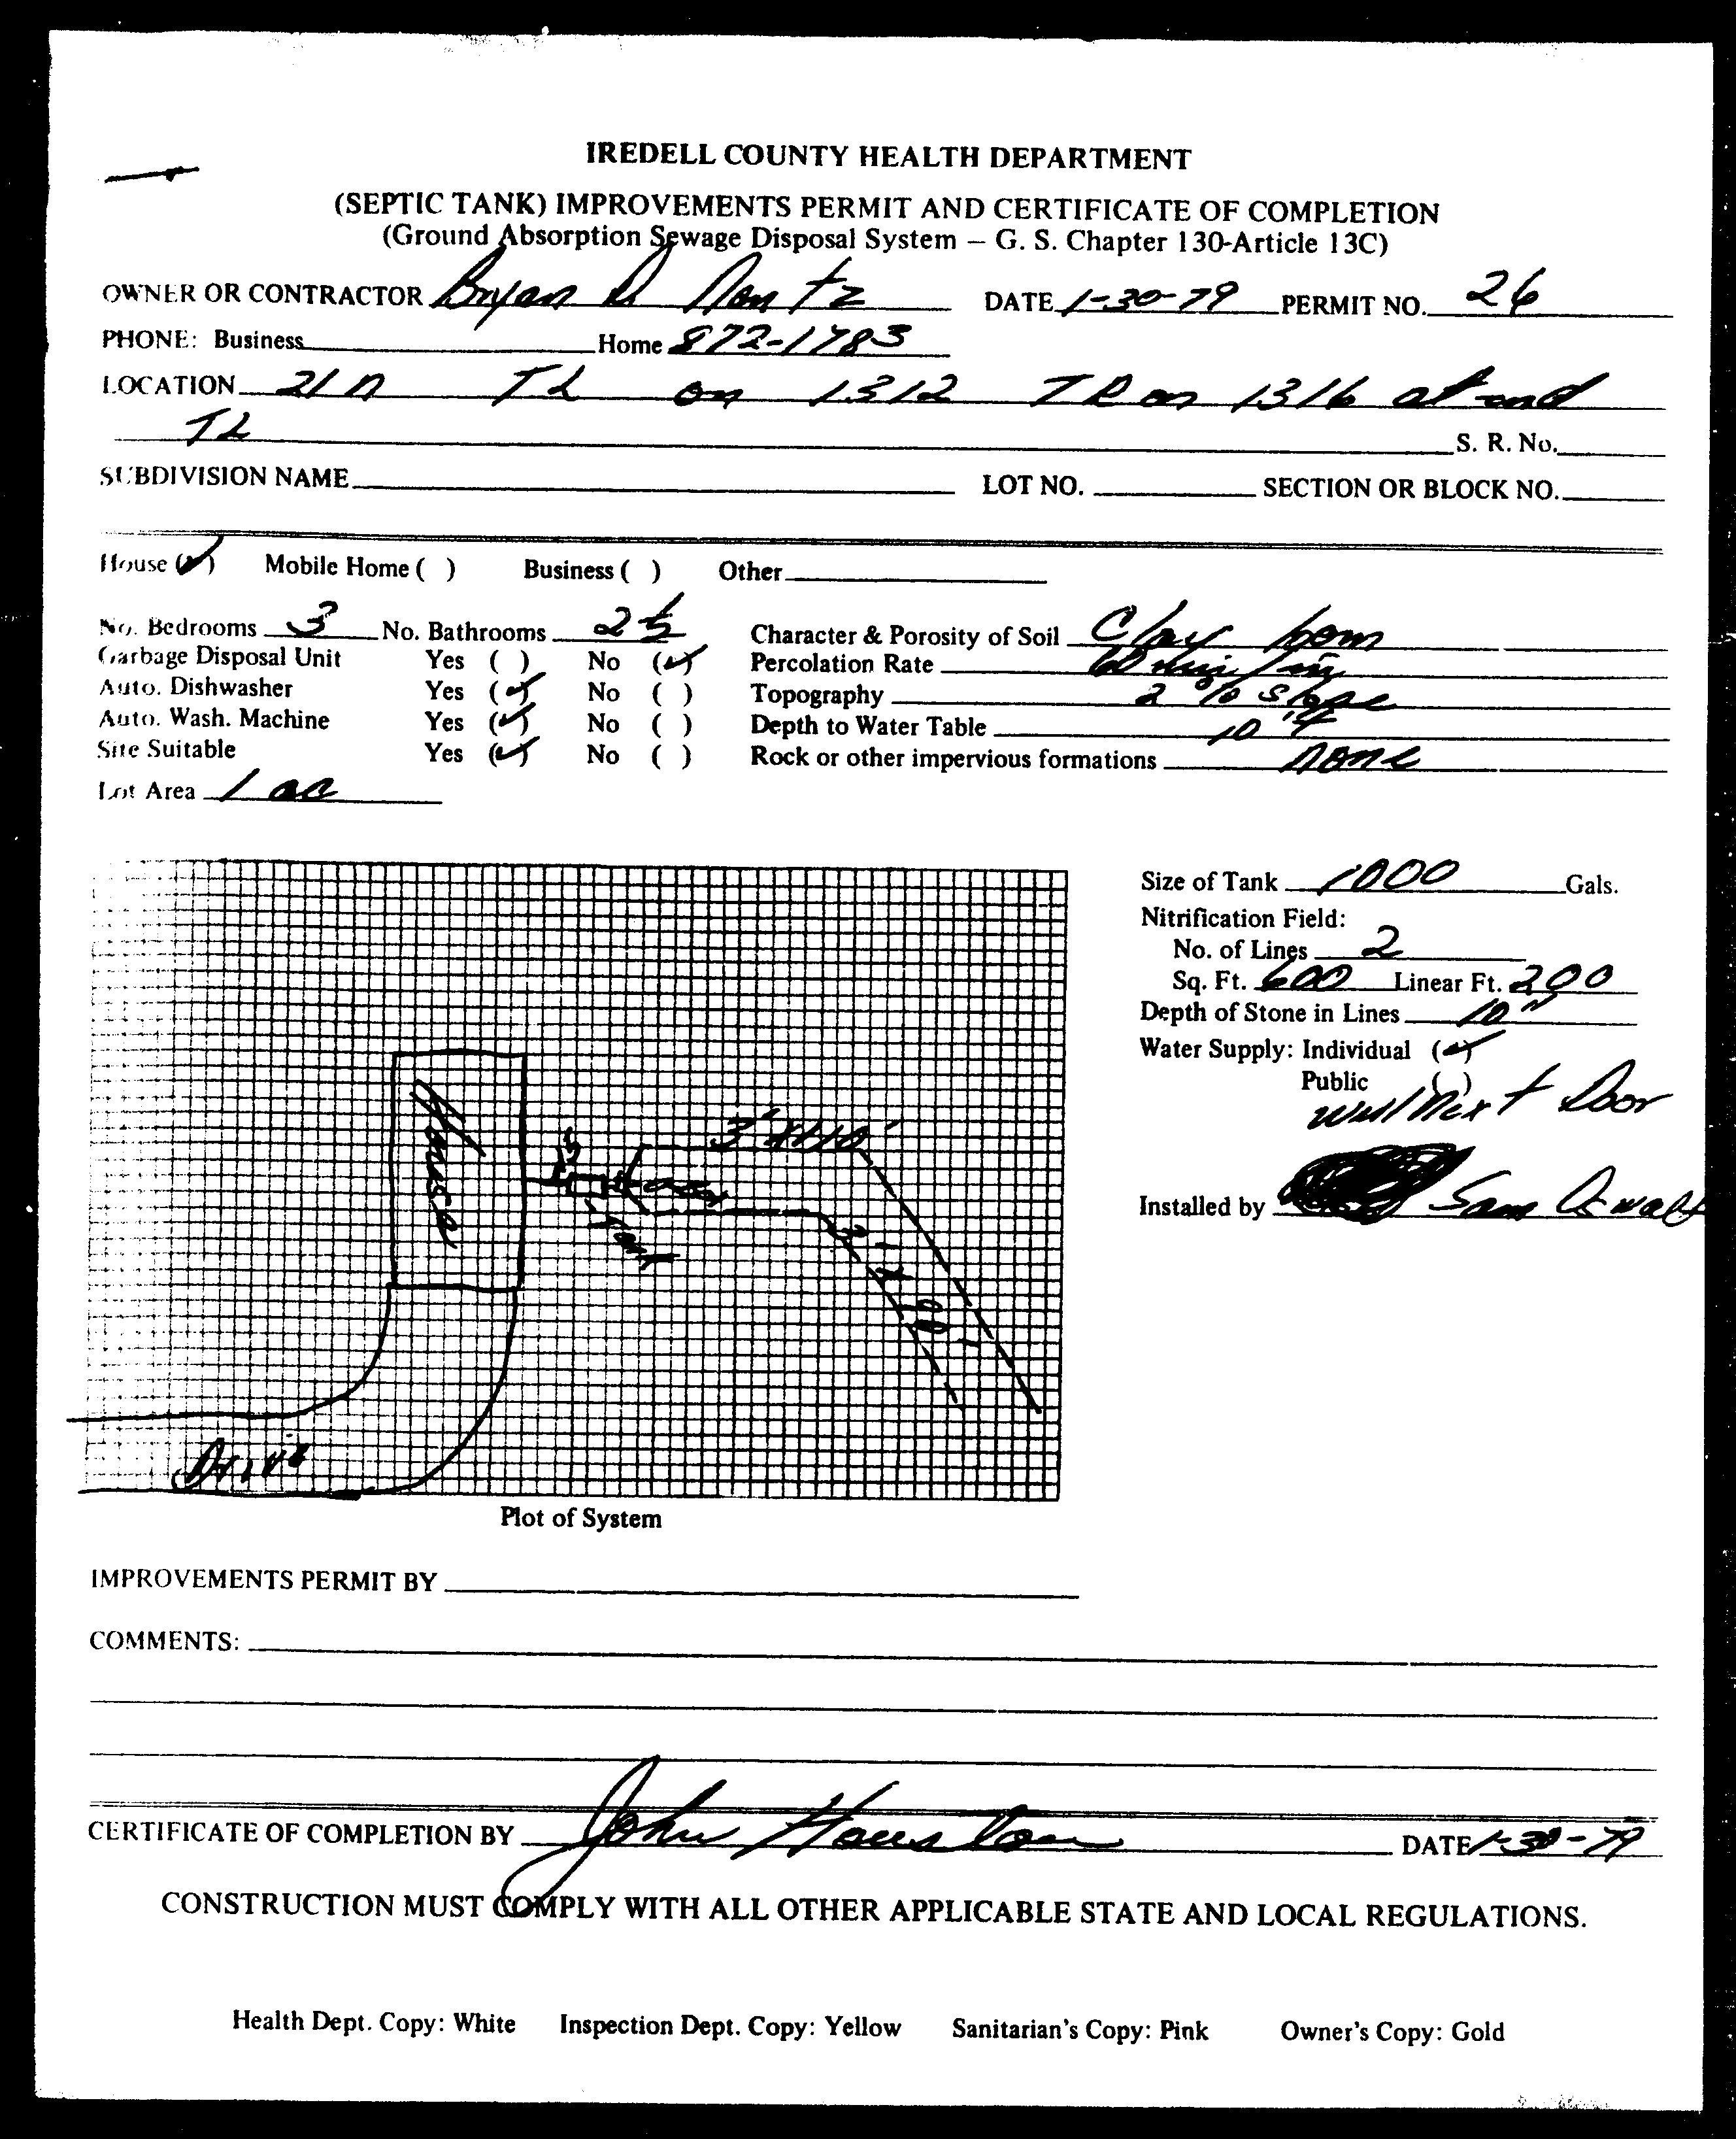 IREDELL COUNTY HEALTH DEPARTMENT
(SEPTIC TANK) IMPROVEMENTS PERMIT AND CERTIFICATE OF COMPLETION
(Ground Absorption Sewage Disposal System – G. S. Chapter 130-Article 13C)
OWNER OR CONTRACTOR Bryan D DATE 1-30-79 PERMIT NO. 26
PHONE: Business Home 872-1783
LOCATION 21 N TL on 1312 TR on 1316 at end
TL S. R. No.
SUBDIVISION NAME LOT NO. SECTION OR BLOCK NO.
House (✓) Mobile Home ( ) Business ( ) Other
No. Bedrooms 3 No. Bathrooms 2½ Character & Porosity of Soil Clay loam
Garbage Disposal Unit Yes ( ) No (✓) Percolation Rate 60 min/in
Auto. Dishwasher Yes (✓) No ( ) Topography 2 % slope
Auto. Wash. Machine Yes (✓) No ( ) Depth to Water Table 10 ft
Site Suitable Yes (✓) No ( ) Rock or other impervious formations none
Lot Area 1 ac
Size of Tank 1000 Gals.
Nitrification Field:
No. of Lines 2
Sq. Ft. 600 Linear Ft. 200
Depth of Stone in Lines 10"
Water Supply: Individual (✓)
Public ( )
Well Next Door
Installed by Sam Oswalt
House
5'
Tank
3' x 110'
3' x 90'
Drive
Plot of System
IMPROVEMENTS PERMIT BY
COMMENTS:
CERTIFICATE OF COMPLETION BY John Houston DATE 1-30-79
CONSTRUCTION MUST COMPLY WITH ALL OTHER APPLICABLE STATE AND LOCAL REGULATIONS.
Health Dept. Copy: White Inspection Dept. Copy: Yellow Sanitarian's Copy: Pink Owner's Copy: Gold